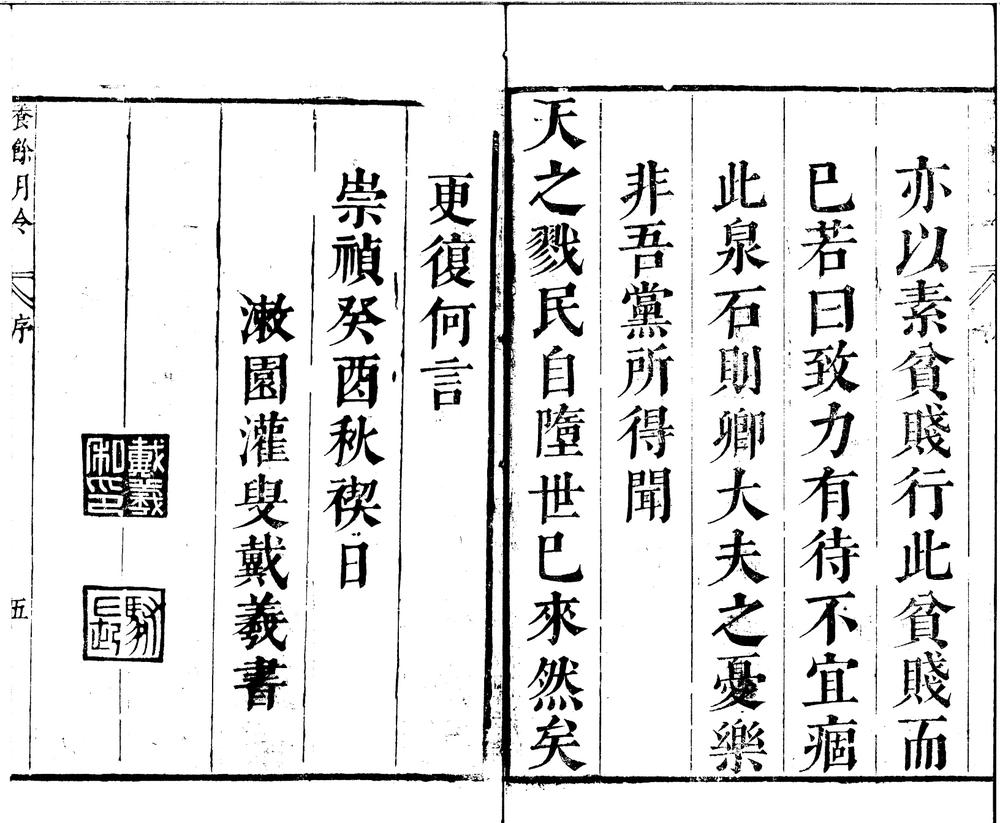 亦以素貧賤行此貧賤而
已若曰致力有待不宜痼
此泉石則卿大夫之憂樂
非吾黨所得聞
天之戮民自墮世已來然矣
更復何言
崇禎癸酉秋禊日
漱園灌叟戴羲書
戴羲私印
養餘月令
序
五